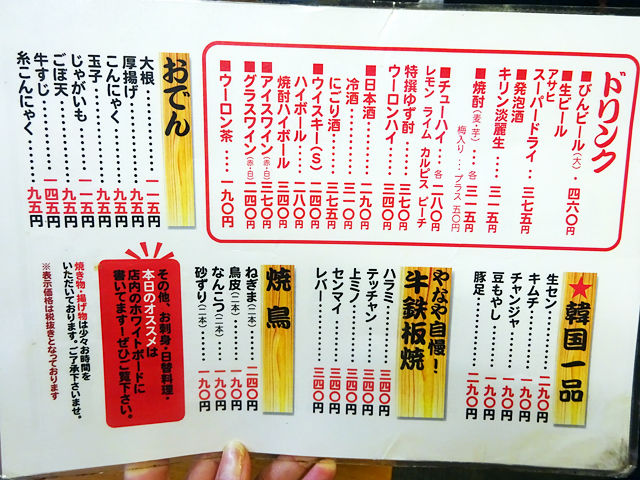 ドリンク
■びんビール(大)・四六〇円
■生ビール
アサヒ
スーパードライ‥三七五円
■発泡酒
キリン淡麗生…三一五円
■焼酎(麦・芋)…各三一五円
梅入り…プラス五〇円
■チューハイ…各二八〇円
レモン ライム カルピス ピーチ
特撰ゆず酎……三七〇円
ウーロンハイ……三四〇円
■日本酒………二九〇円
冷酒……………三一〇円
にごり酒………三七五円
■ウイスキー(S)…三四〇円
ハイボール……二八〇円
焼酎ハイボール…三四〇円
■アイスワイン(赤・白)…三七〇円
■グラスワイン(赤・白)…二四〇円
■ウーロン茶……一九〇円
おでん
大根………一一五円
厚揚げ………九五円
こんにゃく……九五円
玉子…………九五円
じゃがいも…一一五円
ごぼ天………九五円
牛すじ………一四五円
糸こんにゃく…九五円
★韓国一品
生セン………二九〇円
キムチ………一九〇円
チャンジャ……一九〇円
豆もやし……一九〇円
豚足…………一九〇円
やなや自慢!
牛鉄板焼
ハラミ………三四〇円
テッチャン……三四〇円
上ミノ………三四〇円
センマイ……三四〇円
レバー………三四〇円
焼鳥
ねぎま(二本)…二四〇円
鳥皮(二本)…一九〇円
なんこつ(二本)…一九〇円
砂ずり(二本)…一九〇円
その他、お刺身・日替料理・
本日のオススメは
店内のホワイトボードに
書いてます!ぜひご覧下さい。
焼き物・揚げ物は少々お時間を
いただいております。ご了承下さいませ。
※表示価格は税抜きとなっております